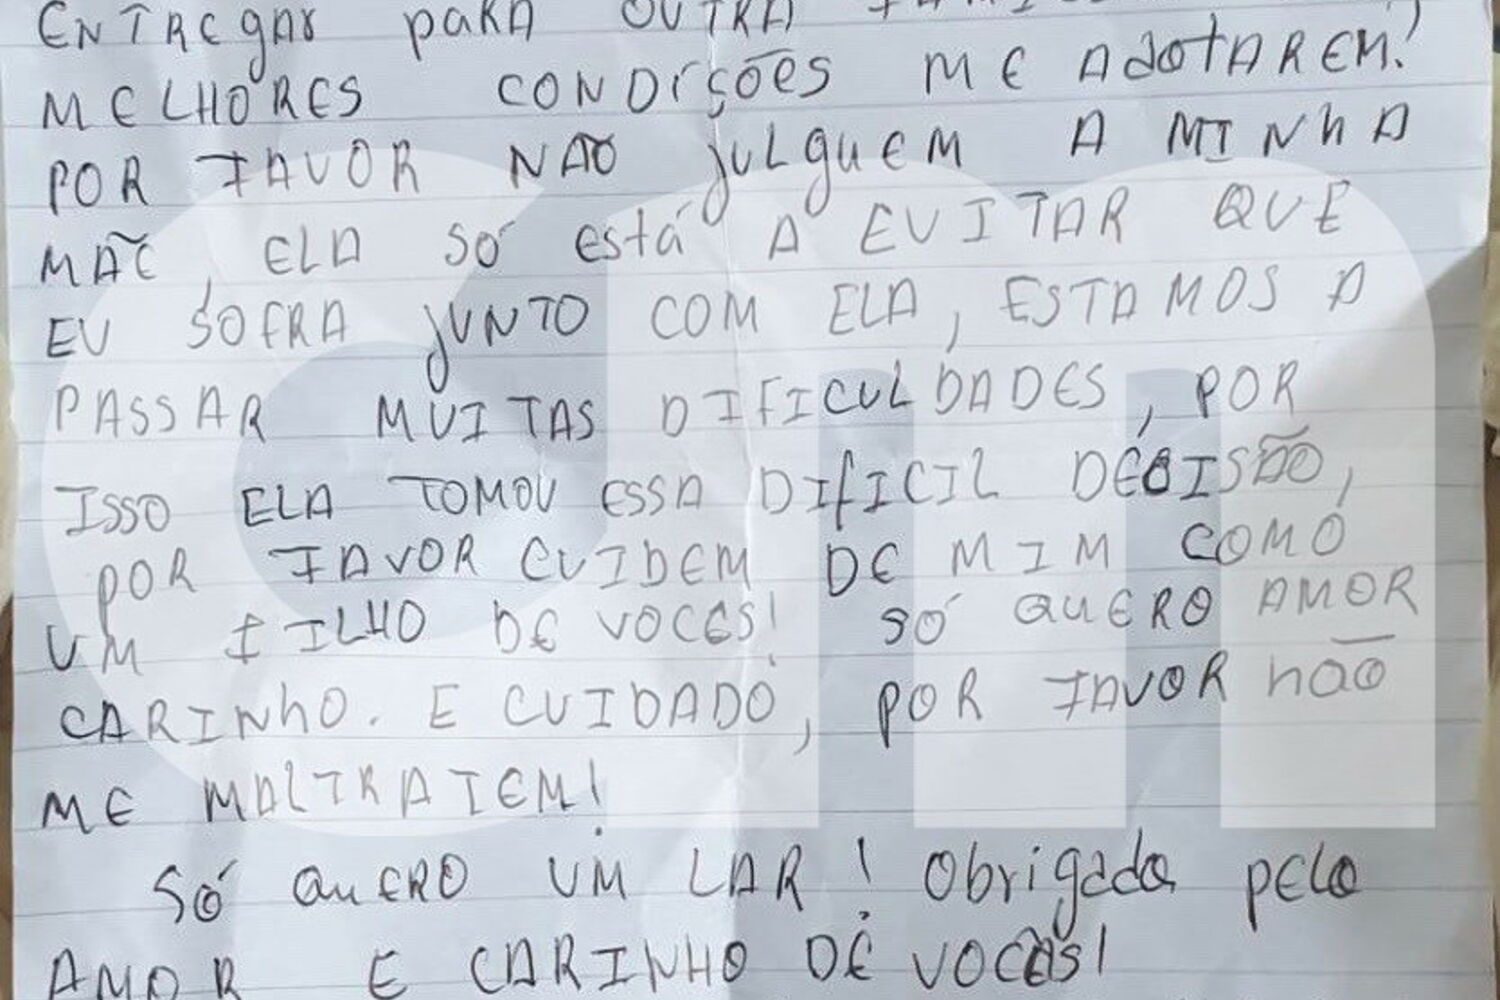 ENTREgAR paRA OUTRA
MELHORES CONDIÇÕES ME ADOTAREM!
POR FAVOR NÃO JULguEM A MINhA
MÃE, ELA Só está A EVITAR QUE
EU SOFRA JUNTO COM ELA, ESTAMOS A
PASSAR MUITAS DIFICULDADES, POR
ISSO ELA TOMOU ESSA DIfICIL DECISÃO,
POR FAVOR CUIDEM DE MIM COMO
UM FILHO DE VOCES! Só QuERO AMOR
CARINhO. E CUIDADO, POR FAVOR não
ME MALTRATEM!
Só QuERO UM LAR! Obrigada pelo
AMOR E CARINHO DE VOCÊS!
cm